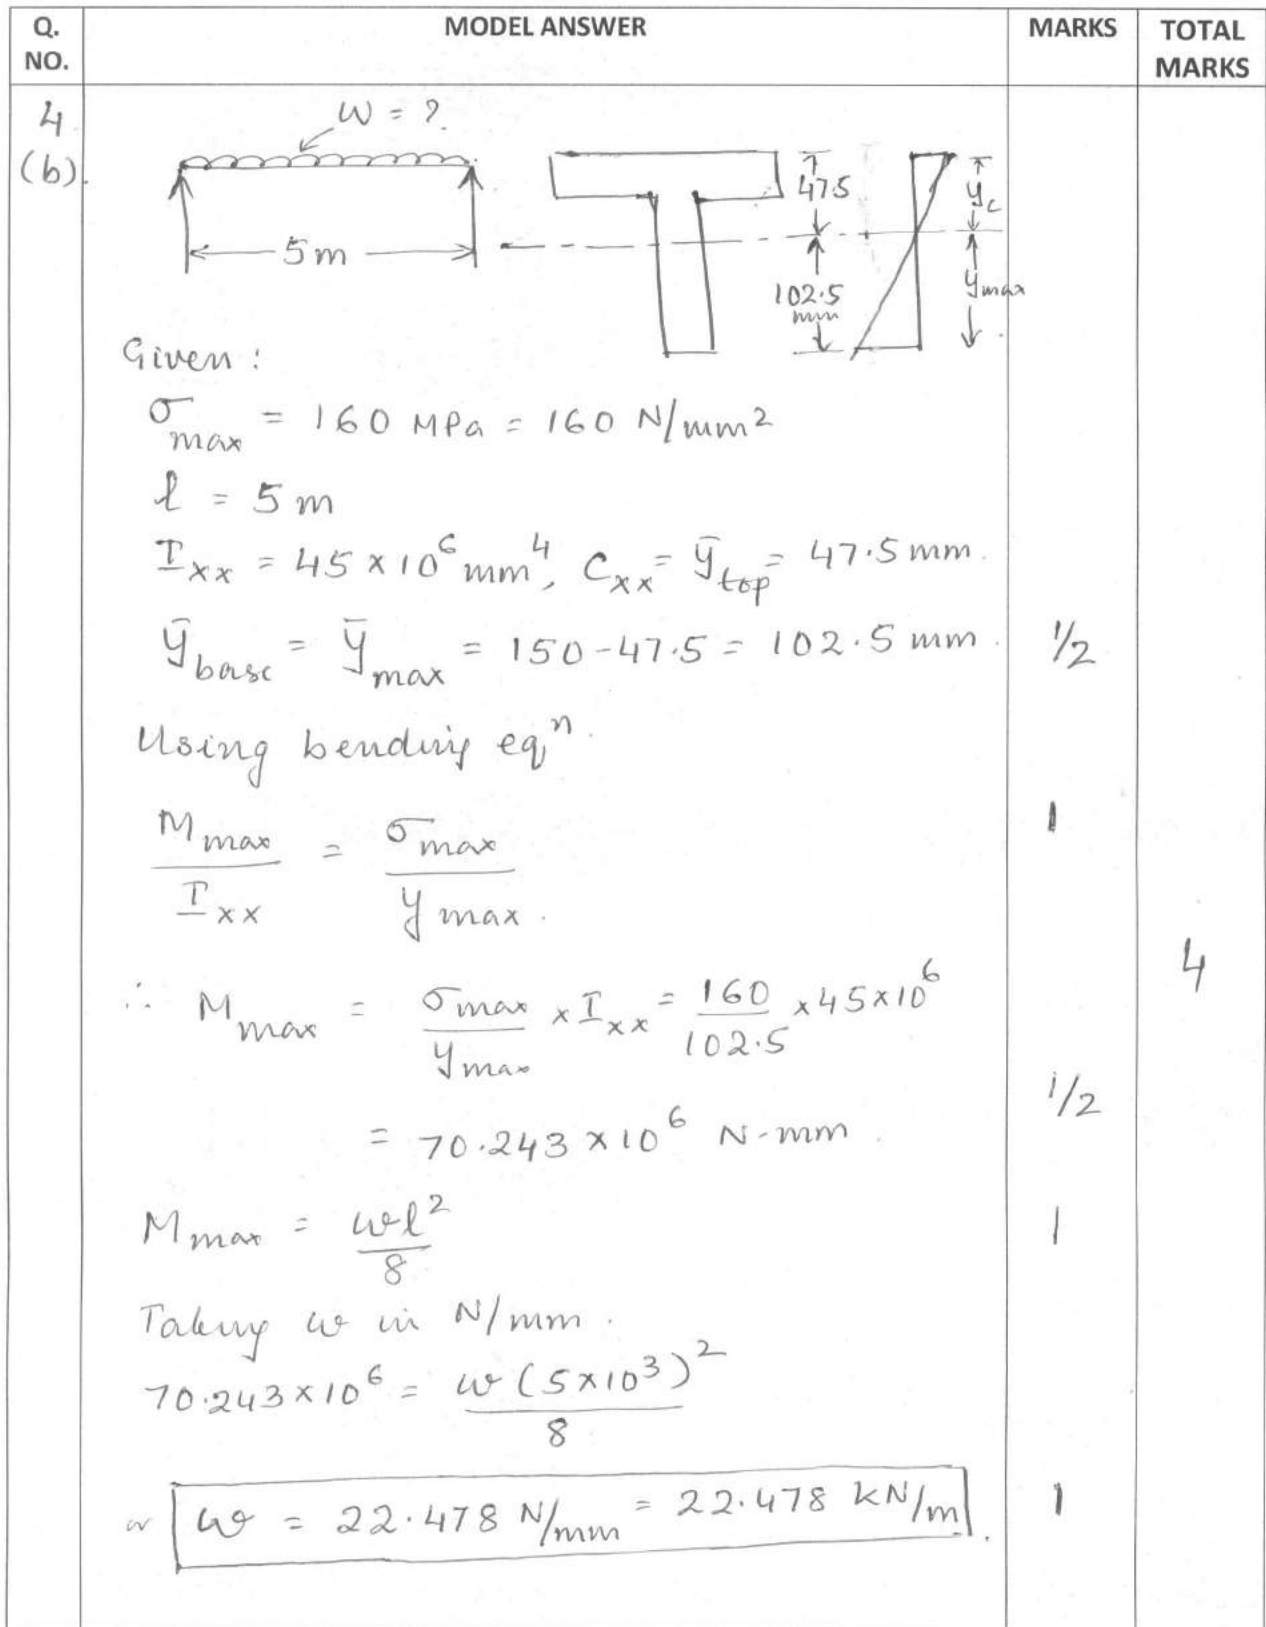 Q. NO.
MODEL ANSWER
MARKS
TOTAL MARKS
4 (b).
W = ?
5m
47.5
102.5 mm
y_c
y_max
Given:
σ_max = 160 MPa = 160 N/mm²
l = 5 m
I_xx = 45 × 10⁶ mm⁴, C_xx = ȳ_top = 47.5 mm.
ȳ_base = ȳ_max = 150 - 47.5 = 102.5 mm. 1/2
Using bending eqⁿ.
M_max / I_xx = σ_max / y_max. 1
∴ M_max = σ_max / y_max × I_xx = 160 / 102.5 × 45×10⁶
4
= 70.243 × 10⁶ N-mm. 1/2
M_max = wl² / 8 1
Taking w in N/mm.
70.243 × 10⁶ = w (5×10³)² / 8
or w = 22.478 N/mm = 22.478 kN/m. 1